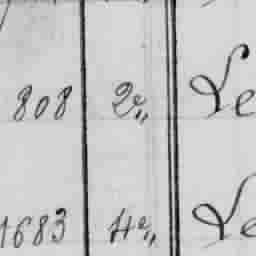 808 2e„ Le
1683 4e„ Le